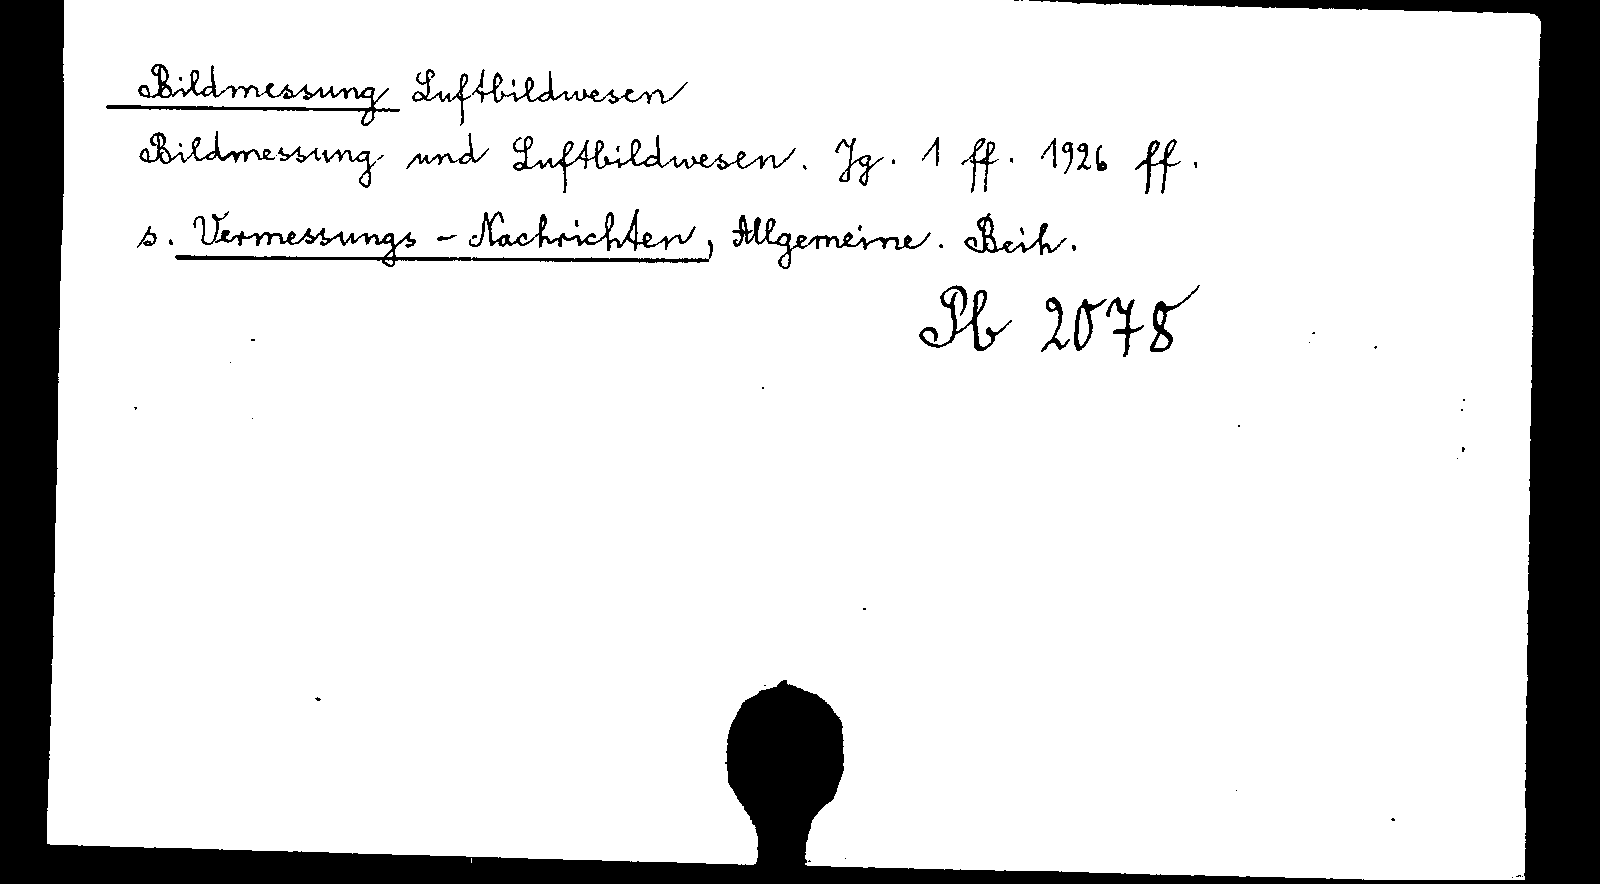 Bildmessung Luftbildwesen
Bildmessung und Luftbildwesen. Jg. 1 ff. 1926 ff.
s. Vermessungs-Nachrichten, Allgemeine. Beih.
Pb 2078